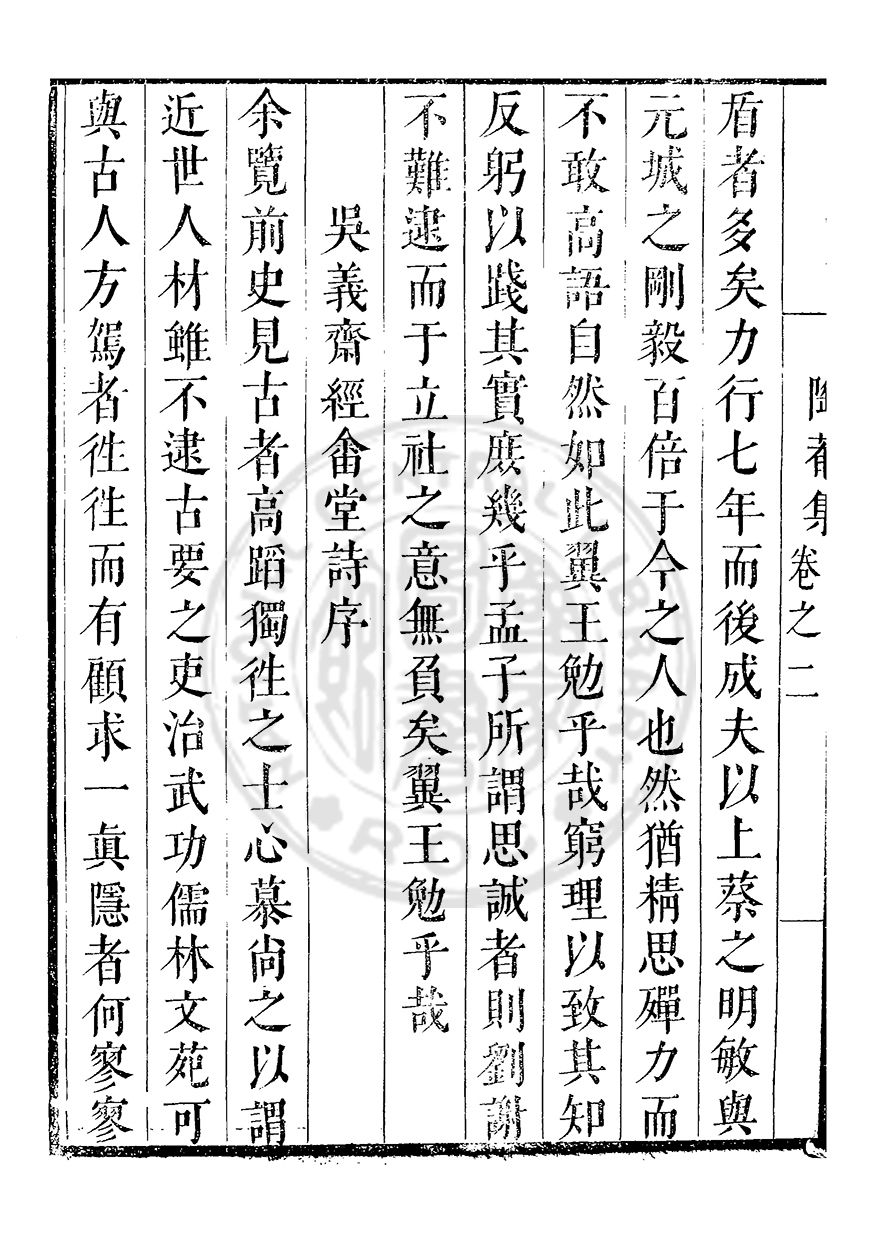 陶菴集
卷之二
盾者多矣力行七年而後成夫以上蔡之明敏與
元城之剛毅百倍于今之人也然猶精思殫力而
不敢高語自然如此翼王勉乎哉窮理以致其知
反躬以踐其實庶幾乎孟子所謂思誠者則劉謝
不難逮而于立社之意無負矣翼王勉乎哉
吳義齋經畬堂詩序
余覽前史見古者高蹈獨徃之士心慕尚之以謂
近世人材雖不逮古要之吏治武功儒林文苑可
與古人方駕者徃徃而有顧求一眞隱者何寥寥